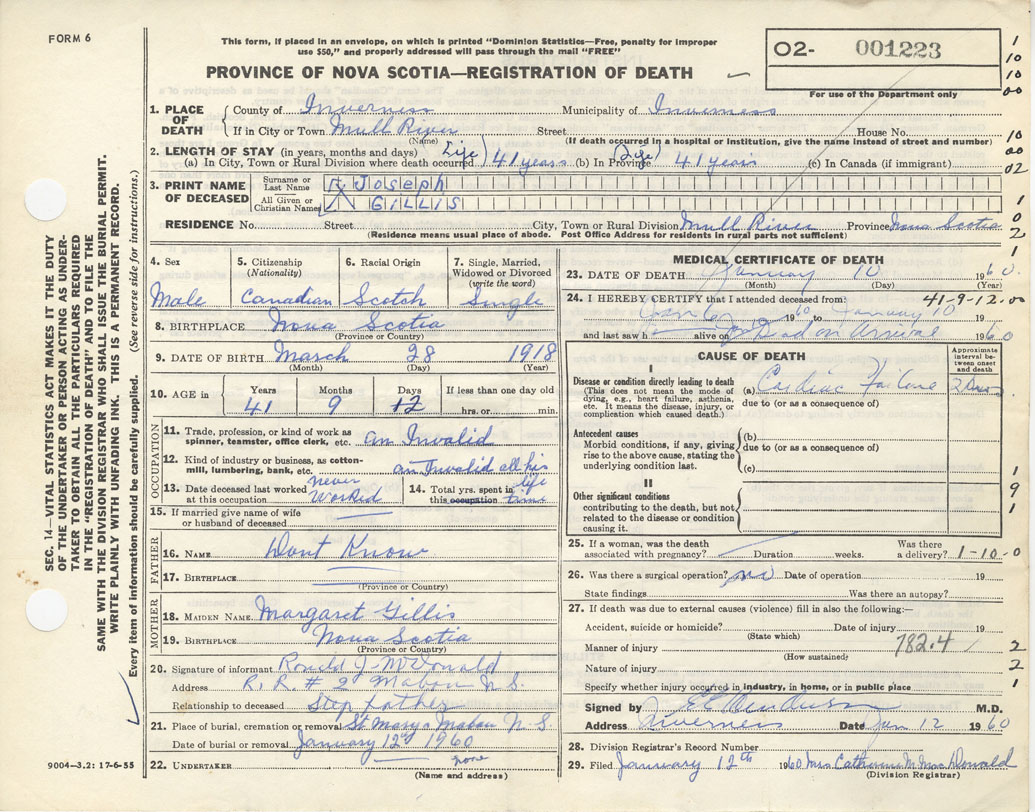 FORM 6
This form, if placed in an envelope, on which is printed "Dominion Statistics—Free, penalty for improper
use $50," and properly addressed will pass through the mail "FREE"
PROVINCE OF NOVA SCOTIA—REGISTRATION OF DEATH
02- 001223
For use of the Department only
1
10
10
00
1. PLACE OF DEATH
County of Inverness Municipality of Inverness
If in City or Town Mull River Street House No. 10
(Name) (If death occurred in a hospital or institution, give the name instead of street and number) 00
2. LENGTH OF STAY (in years, months and days) Life (Life)
(a) In City, Town or Rural Division where death occurred 41 years (b) In Province 41 years (c) In Canada (if immigrant) 02
3. PRINT NAME OF DECEASED
Surname or Last Name Joseph
All Given or Christian Names GILLIS
1
0
2
RESIDENCE No. Street City, Town or Rural Division Mull River Province Nova Scotia
(Residence means usual place of abode. Post Office Address for residents in rural parts not sufficient)
SEC. 14—VITAL STATISTICS ACT MAKES IT THE DUTY
OF THE UNDERTAKER OR PERSON ACTING AS UNDER-
TAKER TO OBTAIN ALL THE PARTICULARS REQUIRED
IN THE "REGISTRATION OF DEATH" AND TO FILE THE
SAME WITH THE DIVISION REGISTRAR WHO SHALL ISSUE THE BURIAL PERMIT.
WRITE PLAINLY WITH UNFADING INK. THIS IS A PERMANENT RECORD.
Every item of information should be carefully supplied. (See reverse side for instructions.)
4. Sex
Male
5. Citizenship
(Nationality)
Canadian
6. Racial Origin
Scotch
7. Single, Married,
Widowed or Divorced
(write the word)
Single
8. BIRTHPLACE Nova Scotia
(Province or Country)
9. DATE OF BIRTH March 28 1918
(Month) (Day) (Year)
10. AGE in
Years 41
Months 9
Days 12
If less than one day old
hrs. or min.
OCCUPATION
11. Trade, profession, or kind of work as
spinner, teamster, office clerk, etc. an Invalid
12. Kind of industry or business, as cotton-
mill, lumbering, bank, etc. an Invalid all his
13. Date deceased last worked
at this occupation never Worked
14. Total yrs. spent in
this occupation life time
15. If married give name of wife
or husband of deceased
FATHER
16. NAME Dont Know
17. BIRTHPLACE
(Province or Country)
MOTHER
18. MAIDEN NAME Margaret Gillis
19. BIRTHPLACE Nova Scotia
(Province or Country)
20. Signature of informant Ronald J McDonald
Address R. R. # 2 Mabou N. S.
Relationship to deceased Step father
21. Place of burial, cremation or removal St Marys Mabou N S
Date of burial or removal January 12th 1960
22. UNDERTAKER none
(Name and address)
9004—3.2: 17-6-55
MEDICAL CERTIFICATE OF DEATH
23. DATE OF DEATH January 10 1960.
(Month) (Day) (Year)
24. I HEREBY CERTIFY that I attended deceased from: 41-9-12.00
1960 to January 10 19
and last saw h alive on Dead on Arrival 1960
CAUSE OF DEATH
Approximate
interval be-
tween onset
and death
I
Disease or condition directly leading to death
(This does not mean the mode of
dying, e.g., heart failure, asthenia,
etc. It means the disease, injury, or
complication which caused death.)
(a) Cardiac Failure
due to (or as a consequence of)
Antecedent causes
Morbid conditions, if any, giving
rise to the above cause, stating the
underlying condition last.
(b)
due to (or as a consequence of)
(c)
II
Other significant conditions
contributing to the death, but not
related to the disease or condition
causing it.
1
9
1
25. If a woman, was the death
associated with pregnancy? Duration weeks. Was there a delivery? 1-10-0
26. Was there a surgical operation? no Date of operation 19
State findings Was there an autopsy?
27. If death was due to external causes (violence) fill in also the following:—
Accident, suicide or homicide? Date of injury 19
(State which)
782.4
Manner of injury 2
(How sustained)
Nature of injury 2
Specify whether injury occurred in industry, in home, or in public place 1
Signed by M.D.
Address Inverness Date Jan 12 1960
28. Division Registrar's Record Number
29. Filed January 12th 1960 Mrs Catherine M. MacDonald
(Division Registrar)